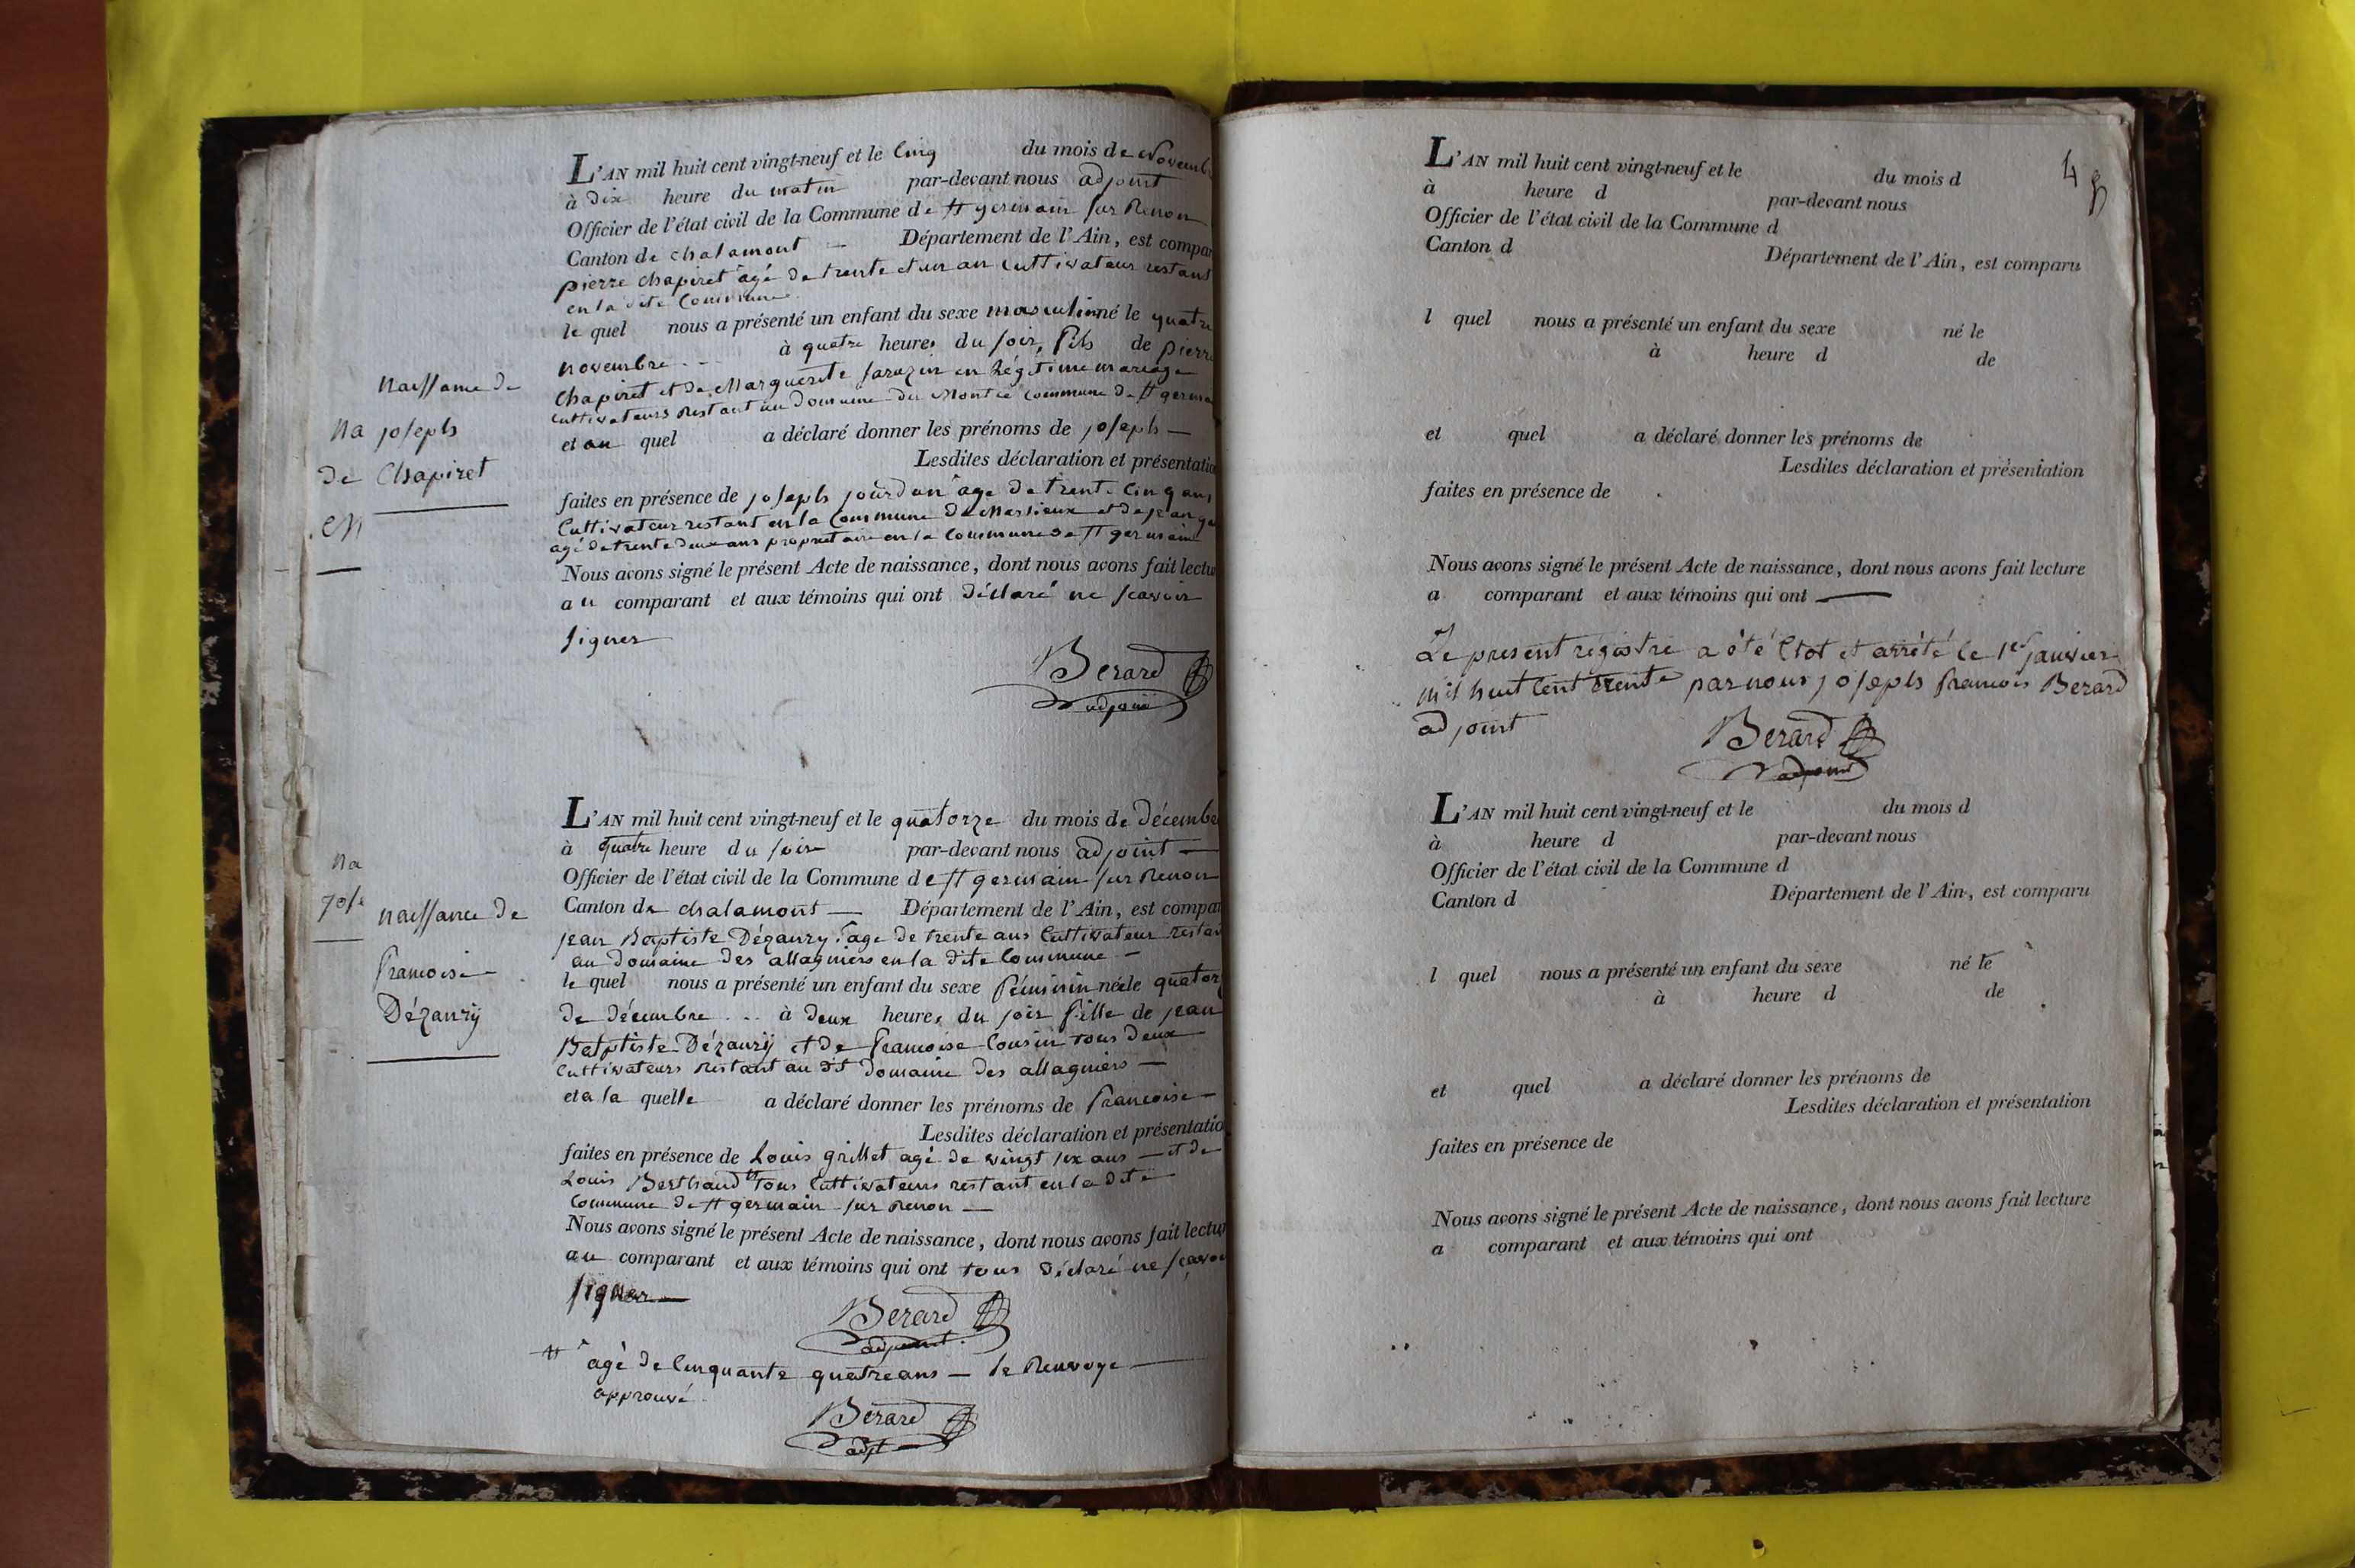 L'AN mil huit cent vingt-neuf et le Cinq du mois de Novemb
à dix heure du matin par-devant nous adjoint
Officier de l'état civil de la Commune de St germain sur Renon
Canton de chalamont — Département de l'Ain, est compar
pierre chapiret agé de trente et un an Cuttivateur restant
en la dite Commune
le quel nous a présenté un enfant du sexe masculin né le quatre
novembre à quatre heures du soir, fils de pierre
chapiret et de Marguerite sarazin en Légitime mariage
Cuttivateurs restant au Domaine du Commune de St germa
et au quel a déclaré donner les prénoms de joseph —
Lesdites déclaration et présentatio
faites en présence de joseph jourdan agé de trente Cinq ans
Cuttivateur restant en la Commune de Marlieux et de jean
agé de trente deux ans propriétaire en la Commune de St germain
Nous avons signé le présent Acte de naissance, dont nous avons fait lectu
au comparant et aux témoins qui ont déclaré ne scavoir
signer
Berard
adjoint
naissance de
joseph
Chapiret
na
de
L'AN mil huit cent vingt-neuf et le quatorze du mois de Décembe
à quatre heure du soir par-devant nous adjoint —
Officier de l'état civil de la Commune de St germain sur Renon
Canton de chalamont — Département de l'Ain, est compar
jean Baptiste Dézaury agé de trente ans Cuttivateur restan
au domaine des allagniers en la dite Commune —
le quel nous a présenté un enfant du sexe féminin née le quator
de décembre ... à deux heures du soir fille de jean
Batptiste Dézaury et de francoise Cousin tous deux
Cuttivateurs restant au dt domaine des allagniers —
et a la quelle a déclaré donner les prénoms de francoise —
Lesdites déclaration et présentatio
faites en présence de Louis grillet agé de vingt six ans — et de
Louis Berthaud tous Cuttivateurs restant en la dite
Commune de St germain sur Renon —
Nous avons signé le présent Acte de naissance, dont nous avons fait lectur
au comparant et aux témoins qui ont tous déclaré ne scavoi
signer —
Berard
adjoint
agé de Cinquante quatre ans — le Renvoye —
approuvé
Berard
adjt
na
jose
naissance de
francoise
Dézaury
4
L'AN mil huit cent vingt-neuf et le du mois d
à heure d par-devant nous
Officier de l'état civil de la Commune d
Canton d Département de l'Ain, est comparu
l quel nous a présenté un enfant du sexe né le
à heure d de
et quel a déclaré donner les prénoms de
Lesdites déclaration et présentation
faites en présence de
Nous avons signé le présent Acte de naissance, dont nous avons fait lecture
a comparant et aux témoins qui ont —
Le present régistre a été Clot et arrêté le 1er janvier
mil huit Cent trente par nous joseph francois Berard
adjoint
Berard
adjoint
L'AN mil huit cent vingt-neuf et le du mois d
à heure d par-devant nous
Officier de l'état civil de la Commune d
Canton d Département de l'Ain, est comparu
l quel nous a présenté un enfant du sexe né le
à heure d de
et quel a déclaré donner les prénoms de
Lesdites déclaration et présentation
faites en présence de
Nous avons signé le présent Acte de naissance, dont nous avons fait lecture
a comparant et aux témoins qui ont